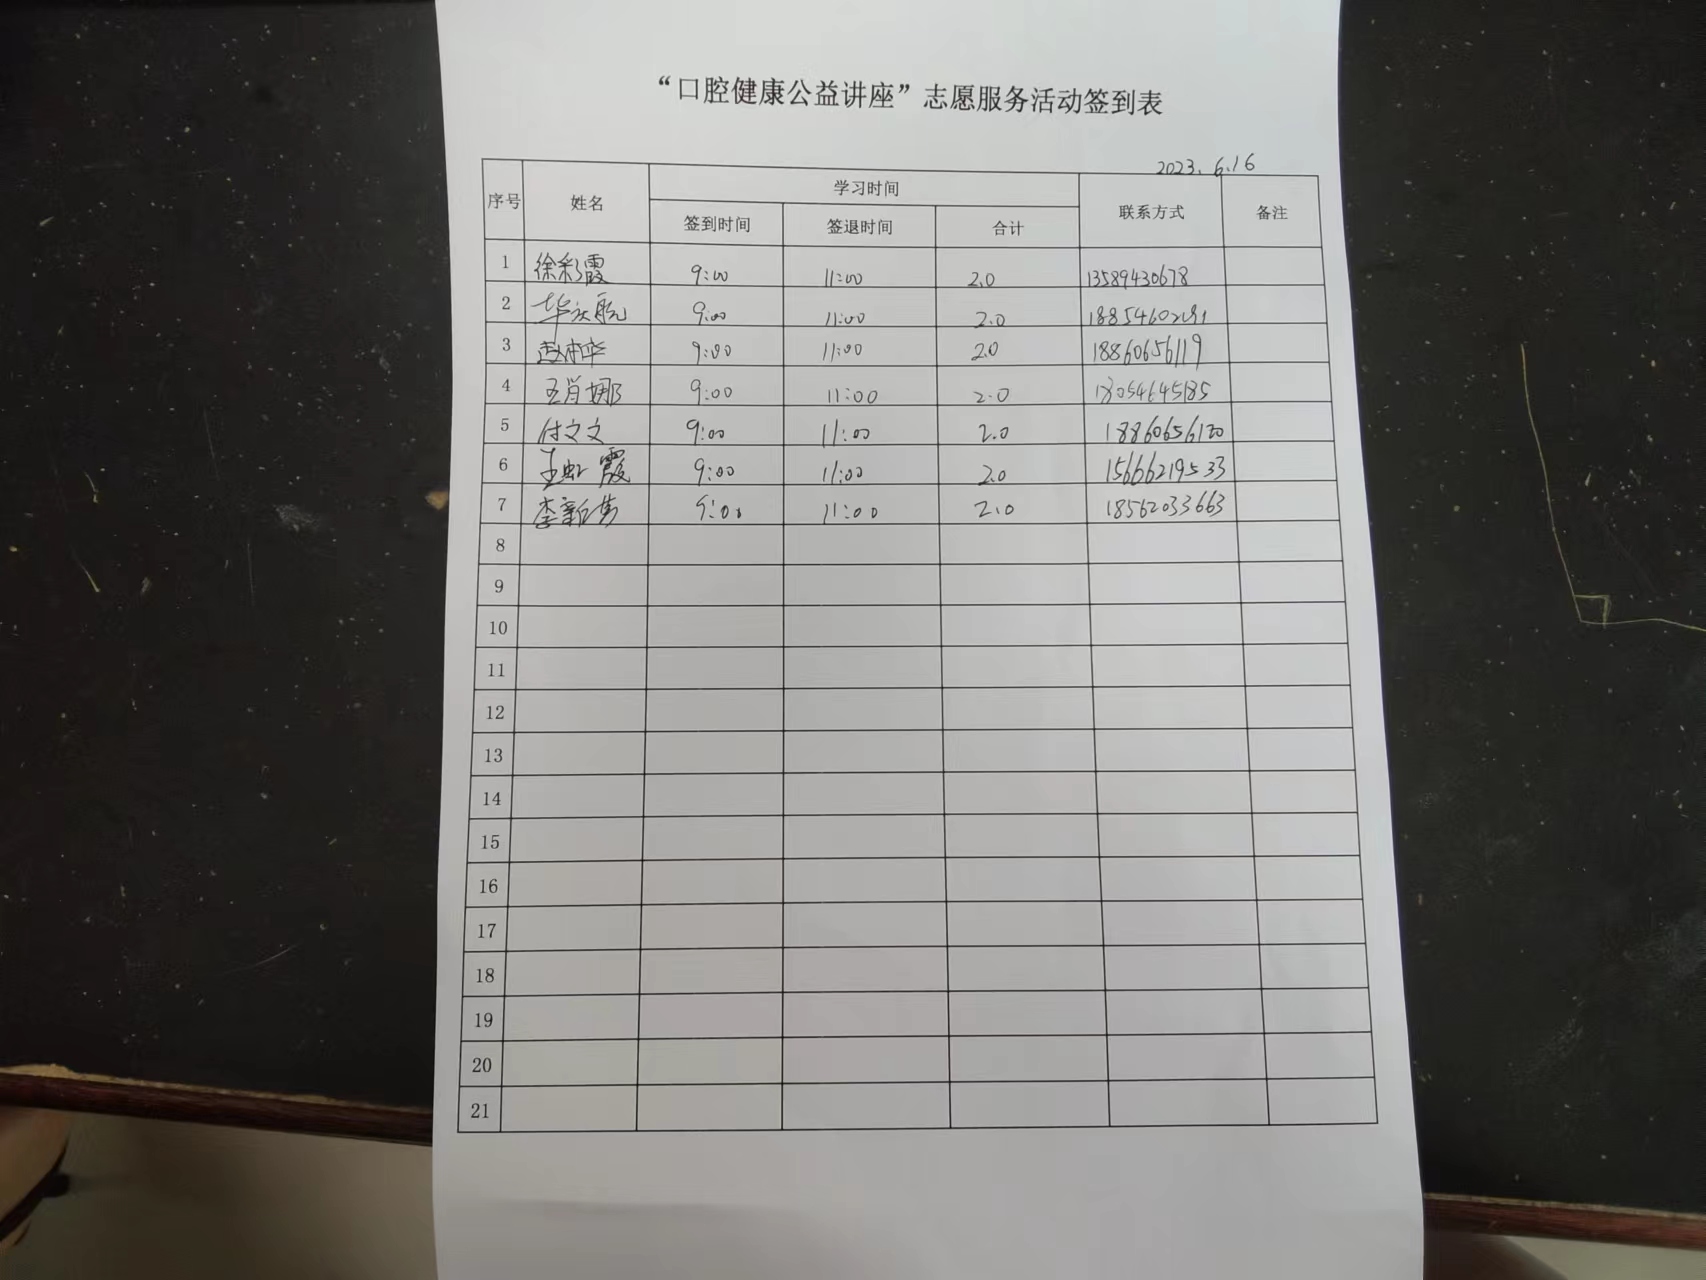 “口腔健康公益讲座”志愿服务活动签到表
2023.6.16
序号 姓名 学习时间 联系方式 备注
签到时间 签退时间 合计
1 徐彩霞 9:00 11:00 2.0 13589430678
2 9:00 11:00 2.0
3 9:00 11:00 2.0 18860656119
4 王肖娜 9:00 11:00 2.0 18054645185
5 付文文 9:00 11:00 2.0 18860656120
6 王虹霞 9:00 11:00 2.0 15666219533
7 9:00 11:00 2.0 18562033663
8
9
10
11
12
13
14
15
16
17
18
19
20
21